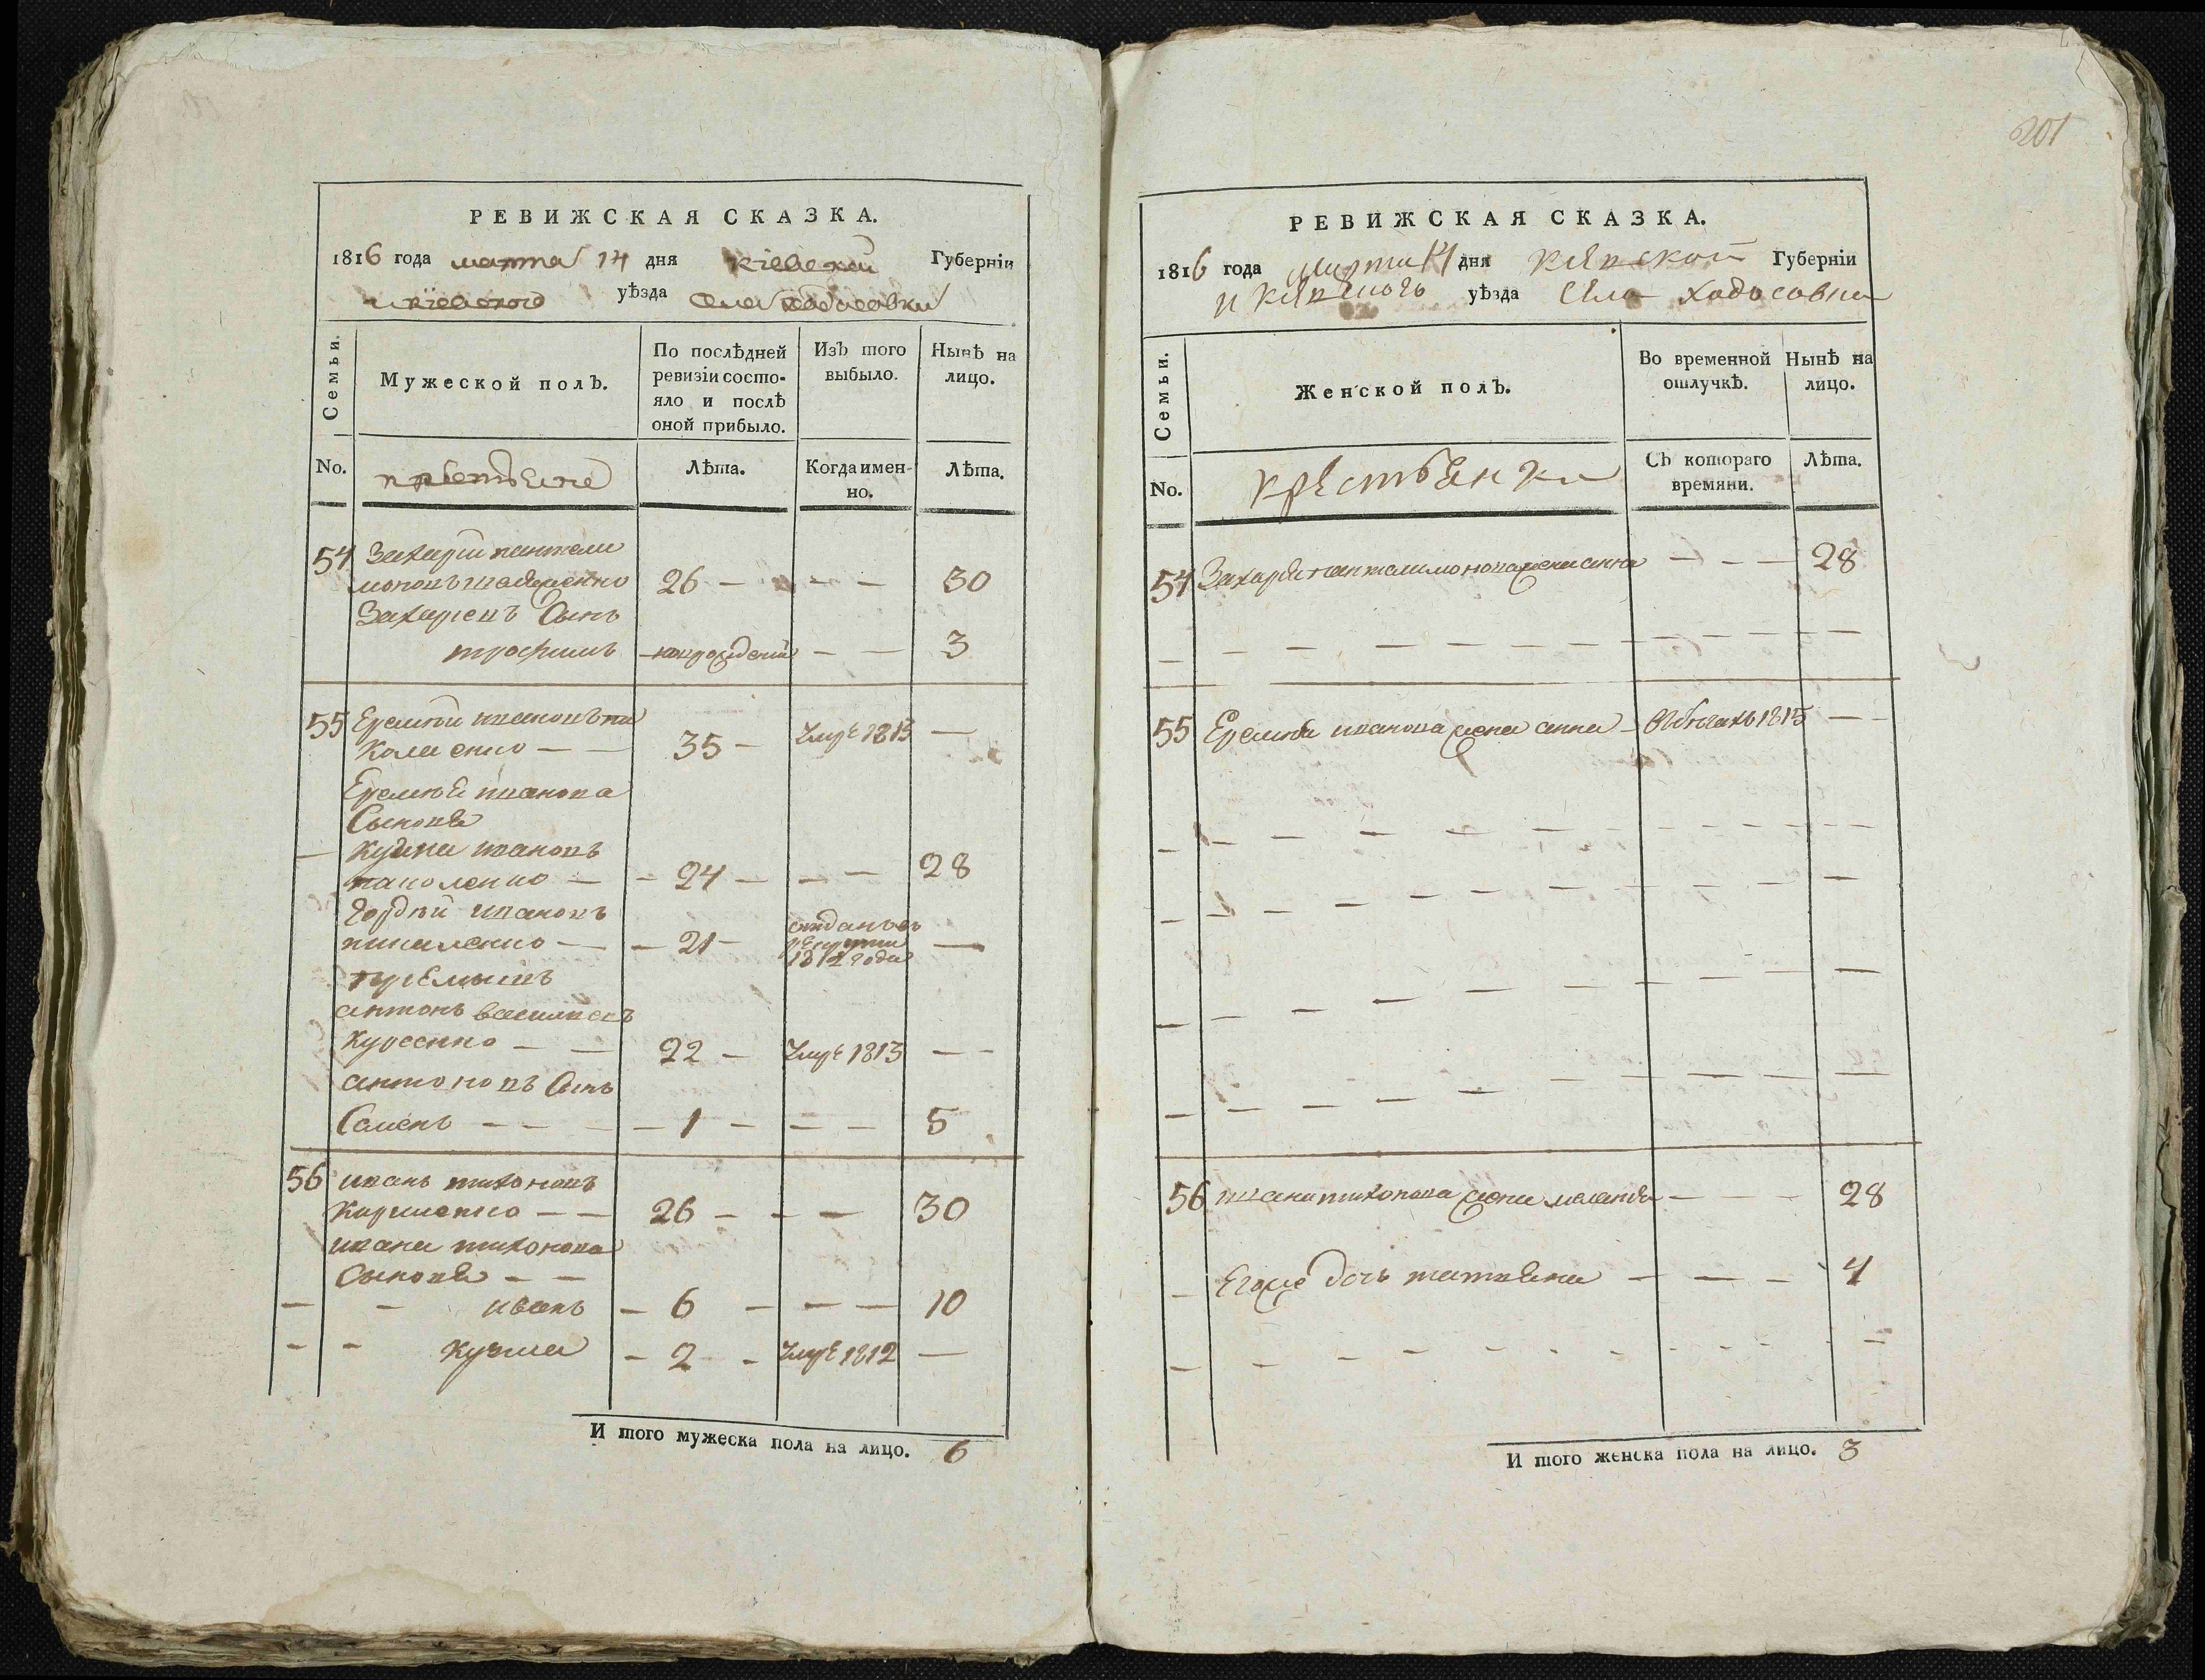 201
РЕВИЖСКАЯ СКАЗКА.
1816 года марта 14 дня кіевской Губерніи
и кіевского уѣзда села ходосовки
Семьи.
Мужеской полЪ.
По послѣдней ревизіи состояло и послѣ оной прибыло.
ИзЪ того выбыло.
Нынѣ на лицо.
No.
крестьяне
Лѣта.
Когда именно.
Лѣта.
54 Захарій пантели
26 — — — 30
Захаріевъ Сынъ
трофимъ новорожденъ — — 3
55 Еремѣй ивановъ
35 — Умре 1813 —
Еремѣя иванова
Сыновя
— кузма ивановъ
— — 24 — — — 28
Гордѣй ивановъ
— — 21 — отданъ въ рекруты 1812 года —
пріемышъ
антонъ василиевъ
Куреенко — — 22 — Умре 1813 — —
антоновъ Сынъ
Семенъ — — — — 1 — — — 5
56 иванъ тихоновъ
— — 26 — — — 30
ивана тихонова
Сыновя — —
— — иванъ — 6 — — — 10
— — кузма — 2 — Умре 1812 —
И того мужеска пола на лицо. 6
РЕВИЖСКАЯ СКАЗКА.
1816 года марта 14 дня кіевской Губерніи
и кіевскогъ уѣзда Села ходосовки
Семьи.
Женской полЪ.
Во временной отлучкѣ.
Нынѣ на лицо.
No.
крестьянки
СЪ котораго времяни.
Лѣта.
54 Захарія панталимонова жена анна — — — 28
— — — — — — — — — — — —
55 Еремѣя иванова жена анна — Вбѣгахъ 1815 — —
— — — — — — — — — — — —
— — — — — — — — — —
— — — — — — — — — —
— — — — — — — — — —
56 ивана тихонова жена маланя — — — 28
— Егоже дочь татяна — — — 4
— — — — — — — — — — — —
И того женска пола на лицо. 3